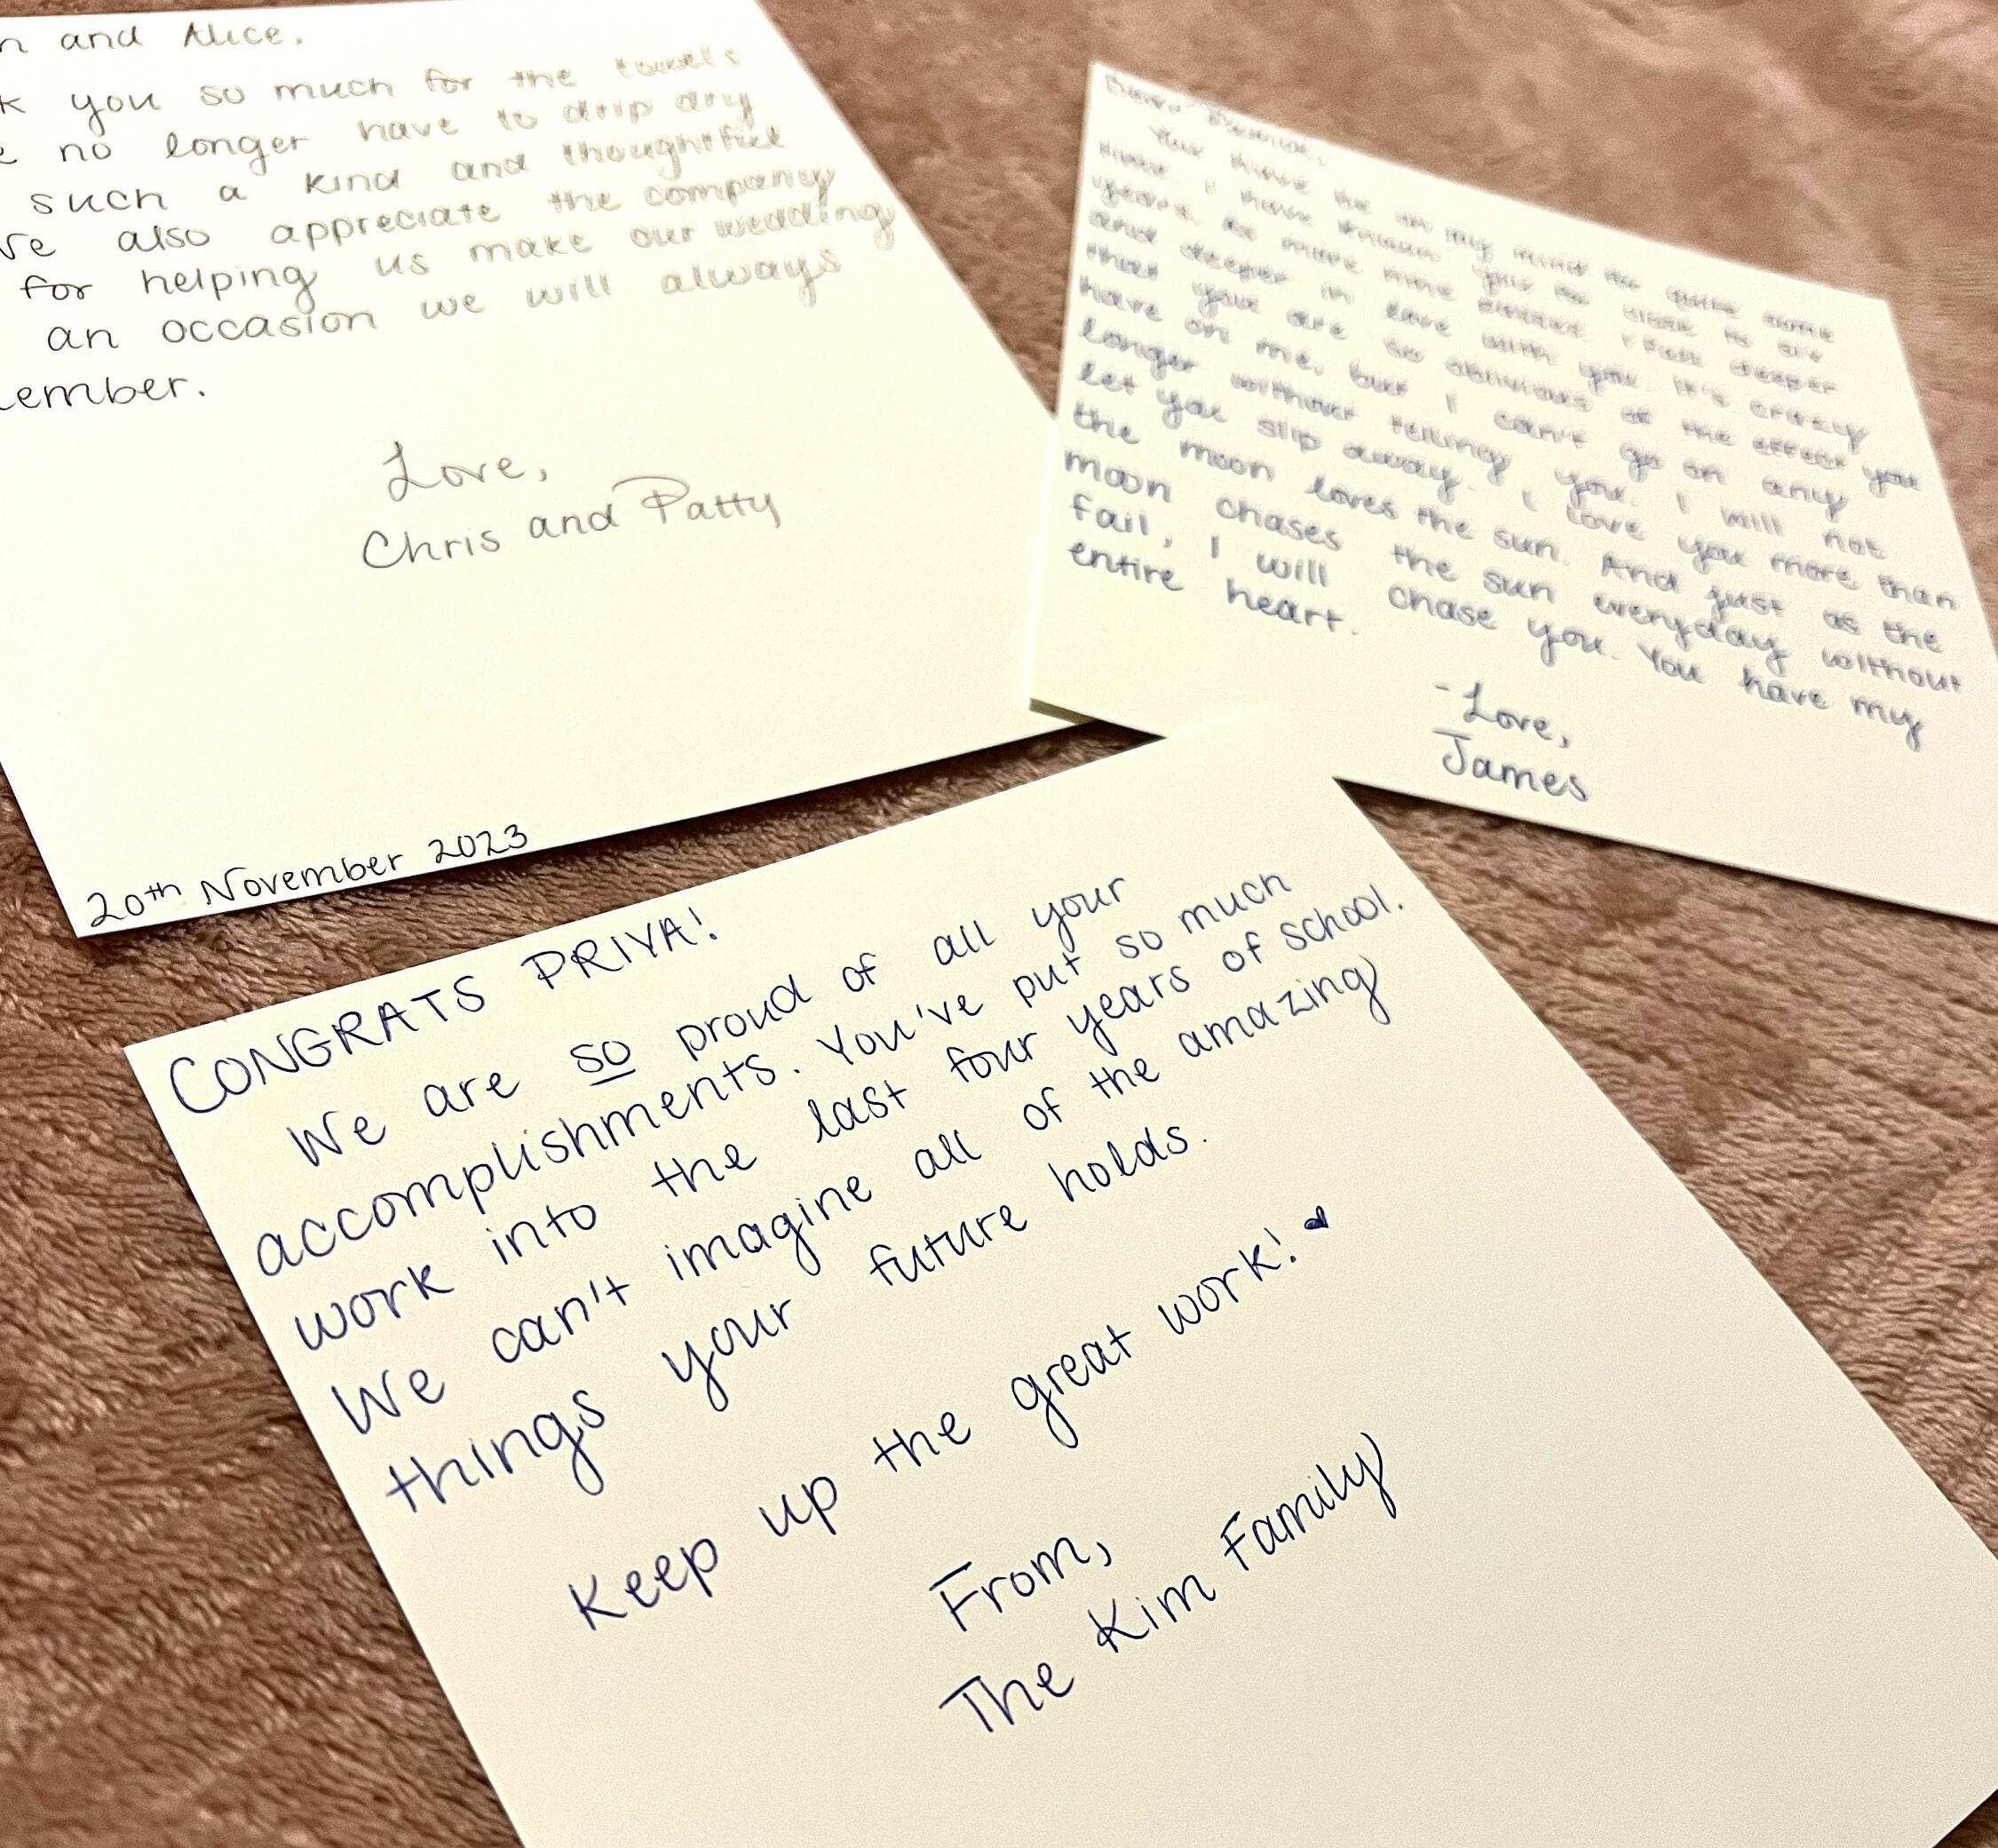 and Alice,
you so much for the towels
no longer have to drip dry
such a kind and thoughtful
also appreciate the company
for helping us make our wedding
an occasion we will always
ember.
Love,
Chris and Patty
20th November 2023
You have be on my mind for quite some
time. I have known you
years,
and deeper in love with you. It's crazy
that you are so oblivious of the effect you
have on me, but I can't go on any
longer without telling you. I will not
let you slip away. I love you more than
the moon loves the sun. And just as the
moon chases the sun everyday without
fail, I will chase you. You have my
entire heart.
-Love,
James
CONGRATS PRIYA!
We are so proud of all your
accomplishments. You've put so much
work into the last four years of school.
We can't imagine all of the amazing
things your future holds.
Keep up the great work!
From,
The Kim Family